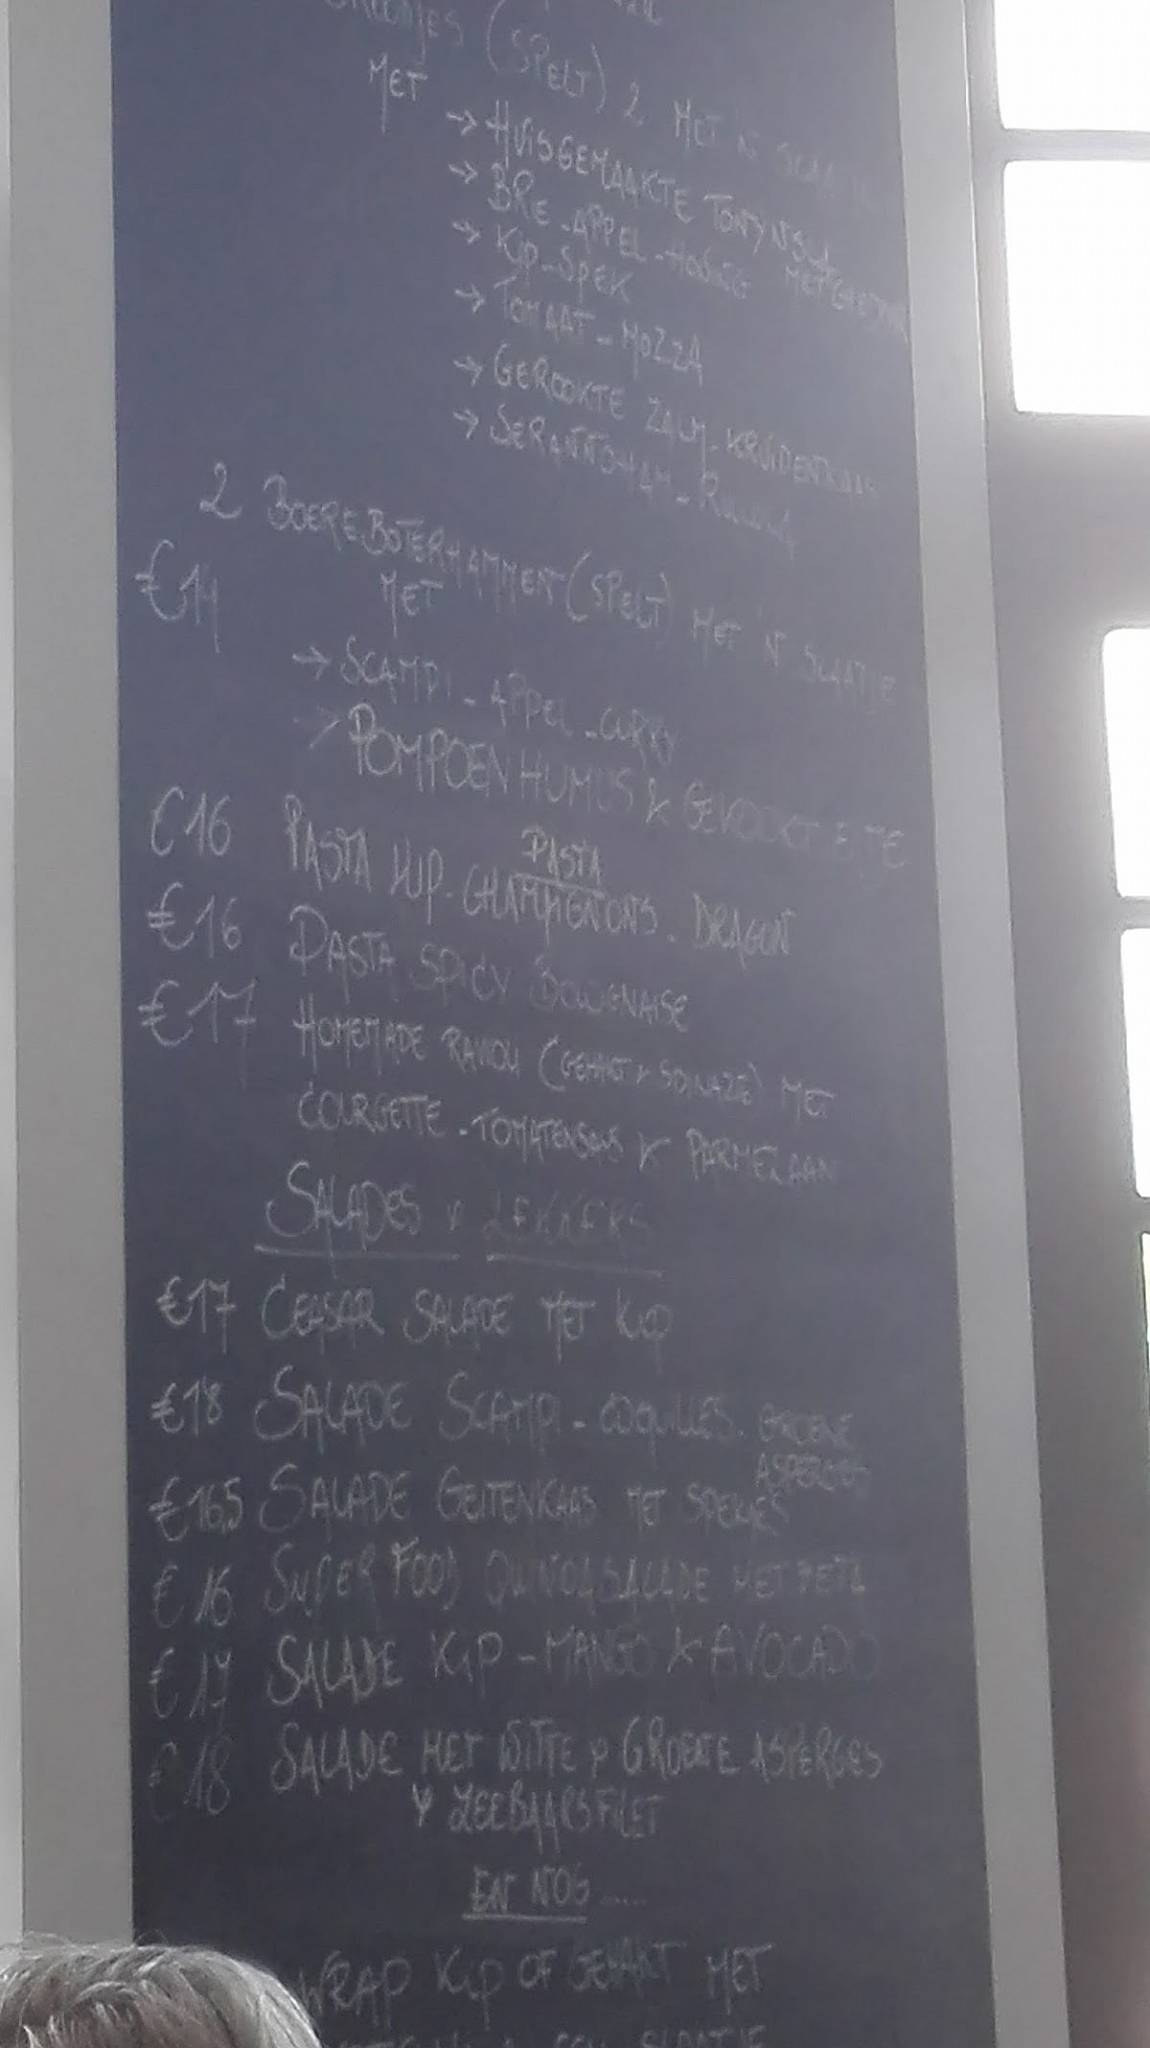 (SPELT) 2 MET 'N
MET
→ HUISGEMAAKTE
→ BRIE - APPEL - HONING
→ KIP - SPEK
→ TOMAAT - MOZZA
→ GEROOKTE ZALM - KRUIDENKAAS
→ SERANNOHAM - RUCOLA
2 BOEREBOTERHAMMEN (SPELT) MET 'N SLAATJE
€14 MET
→ SCAMPI - APPEL - CURRY
→ POMPOENHUMUS & GEKOOKT EITJE
PASTA
€16 PASTA KIP - CHAMPIGNONS - DRAGON
€16 PASTA SPICY BOLOGNAISE
€17 HOMEMADE RAVIOLI (GEHAKT & SPINAZIE) MET
COURGETTE - TOMATENSAUS & PARMEZAAN
SALADES & LEKKERS
€17 CEASAR SALADE MET KIP
€18 SALADE SCAMPI - COQUILLES - GROENE
ASPERGES
€16,5 SALADE GEITENKAAS MET SPEKJES
€16 SUPER FOOD QUINOASALADE MET FETA
€17 SALADE KIP - MANGO & AVOCADO
€18 SALADE MET WITTE & GROENE ASPERGES
& ZEEBAARSFILET
EN NOG .....
WRAP KIP OF GEHAKT MET
SLAATJE